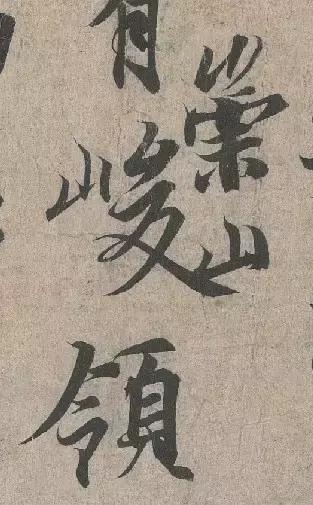 有崇山峻領